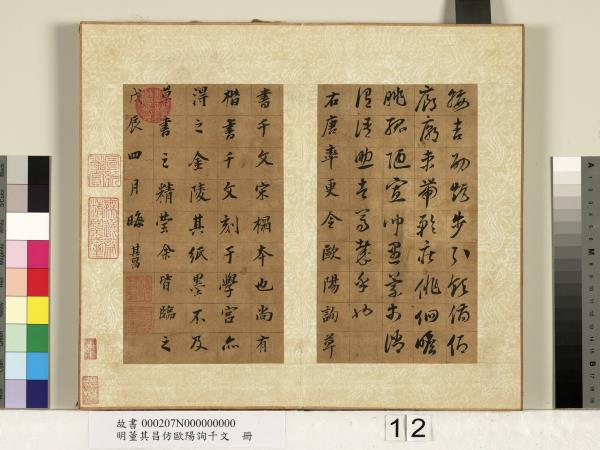 綏吉劭矩步引領俯仰
廊廟束帶矜莊俳佪瞻
眺孤陋寡聞愚蒙等誚
謂語助者焉哉乎也
右唐率更令歐陽詢草
書千文宋榻本也尚有
楷書千文刻于學宮亦
得之金陵其紙墨不及
草書之精瑩余皆臨之
戊辰四月晦其昌
故書 000207N000000000
明董其昌仿歐陽詢千文 冊
12